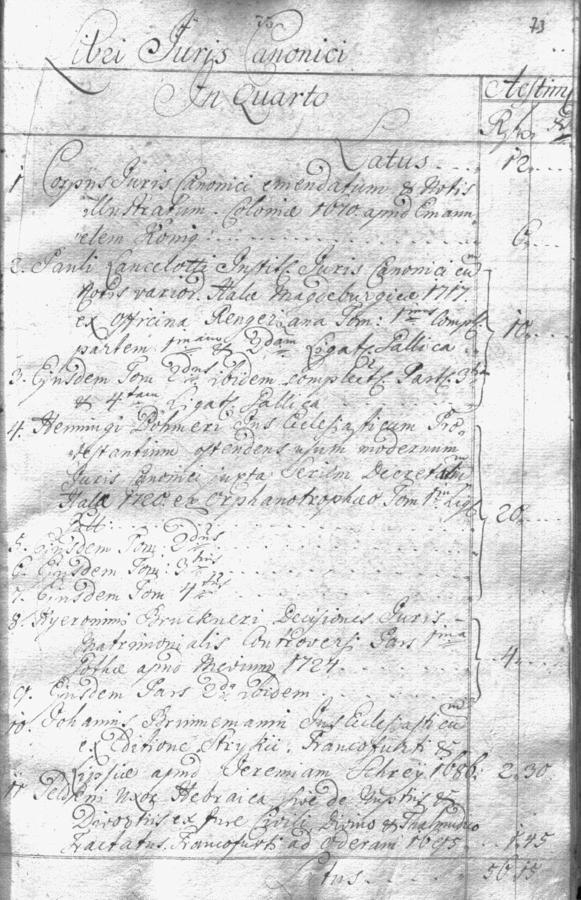 73
Libri Juris Canonici
In Quarto
Aestim
Latus 12
1 Corpus Juris Canonici emendatum & Notis
illustratum. Coloniae 1670. apud Emanu
elem König 6
2. Pauli Lancelotti Instit. Juris Canonici cū
Notis varior. Halae Magdeburgicae 1717.
ex officina Rengeriana Tom: 1mus Compl:
partem 1mam & 2dam Ligat. Gallica 10
3. Ejusdem Tom 2dus ibidem complect. Part. 3tiam
& 4tam Ligat. Gallica
4. Henningi Böhmeri Jus Eclesiasticum Pro
testantium ostendens usum modernum
Juris Canonici juxta Seriem Decretalium
Halae 1720. ex Orphanotrophaeo Tom 1mus Lig.
20
5. Ejusdem Tom: 2dus
6. Ejusdem Tom: 3tius
7. Ejusdem Tom 4tus
8. Hyeronimi Bruckneri Decisiones Juris
Matrimonialis Controversi Pars 1ma
Gothae apud Mevium 1724. 4.
9. Ejusdem Pars 2da ibidem
10. Johannis Brunnemanni Jus Eclesiasticum
ex Editione Strykii. Francofurti &
Lipsiae apud Jeremiam Schrey 1686. 2.30
11 Seldeni Uxor Hebraica sive de Nuptiis &
Divortiis ex Jure Civili Divino & Thalmudico
Tractatus. Francofurti ad Oderam 1695 1.45
Latus 56 15